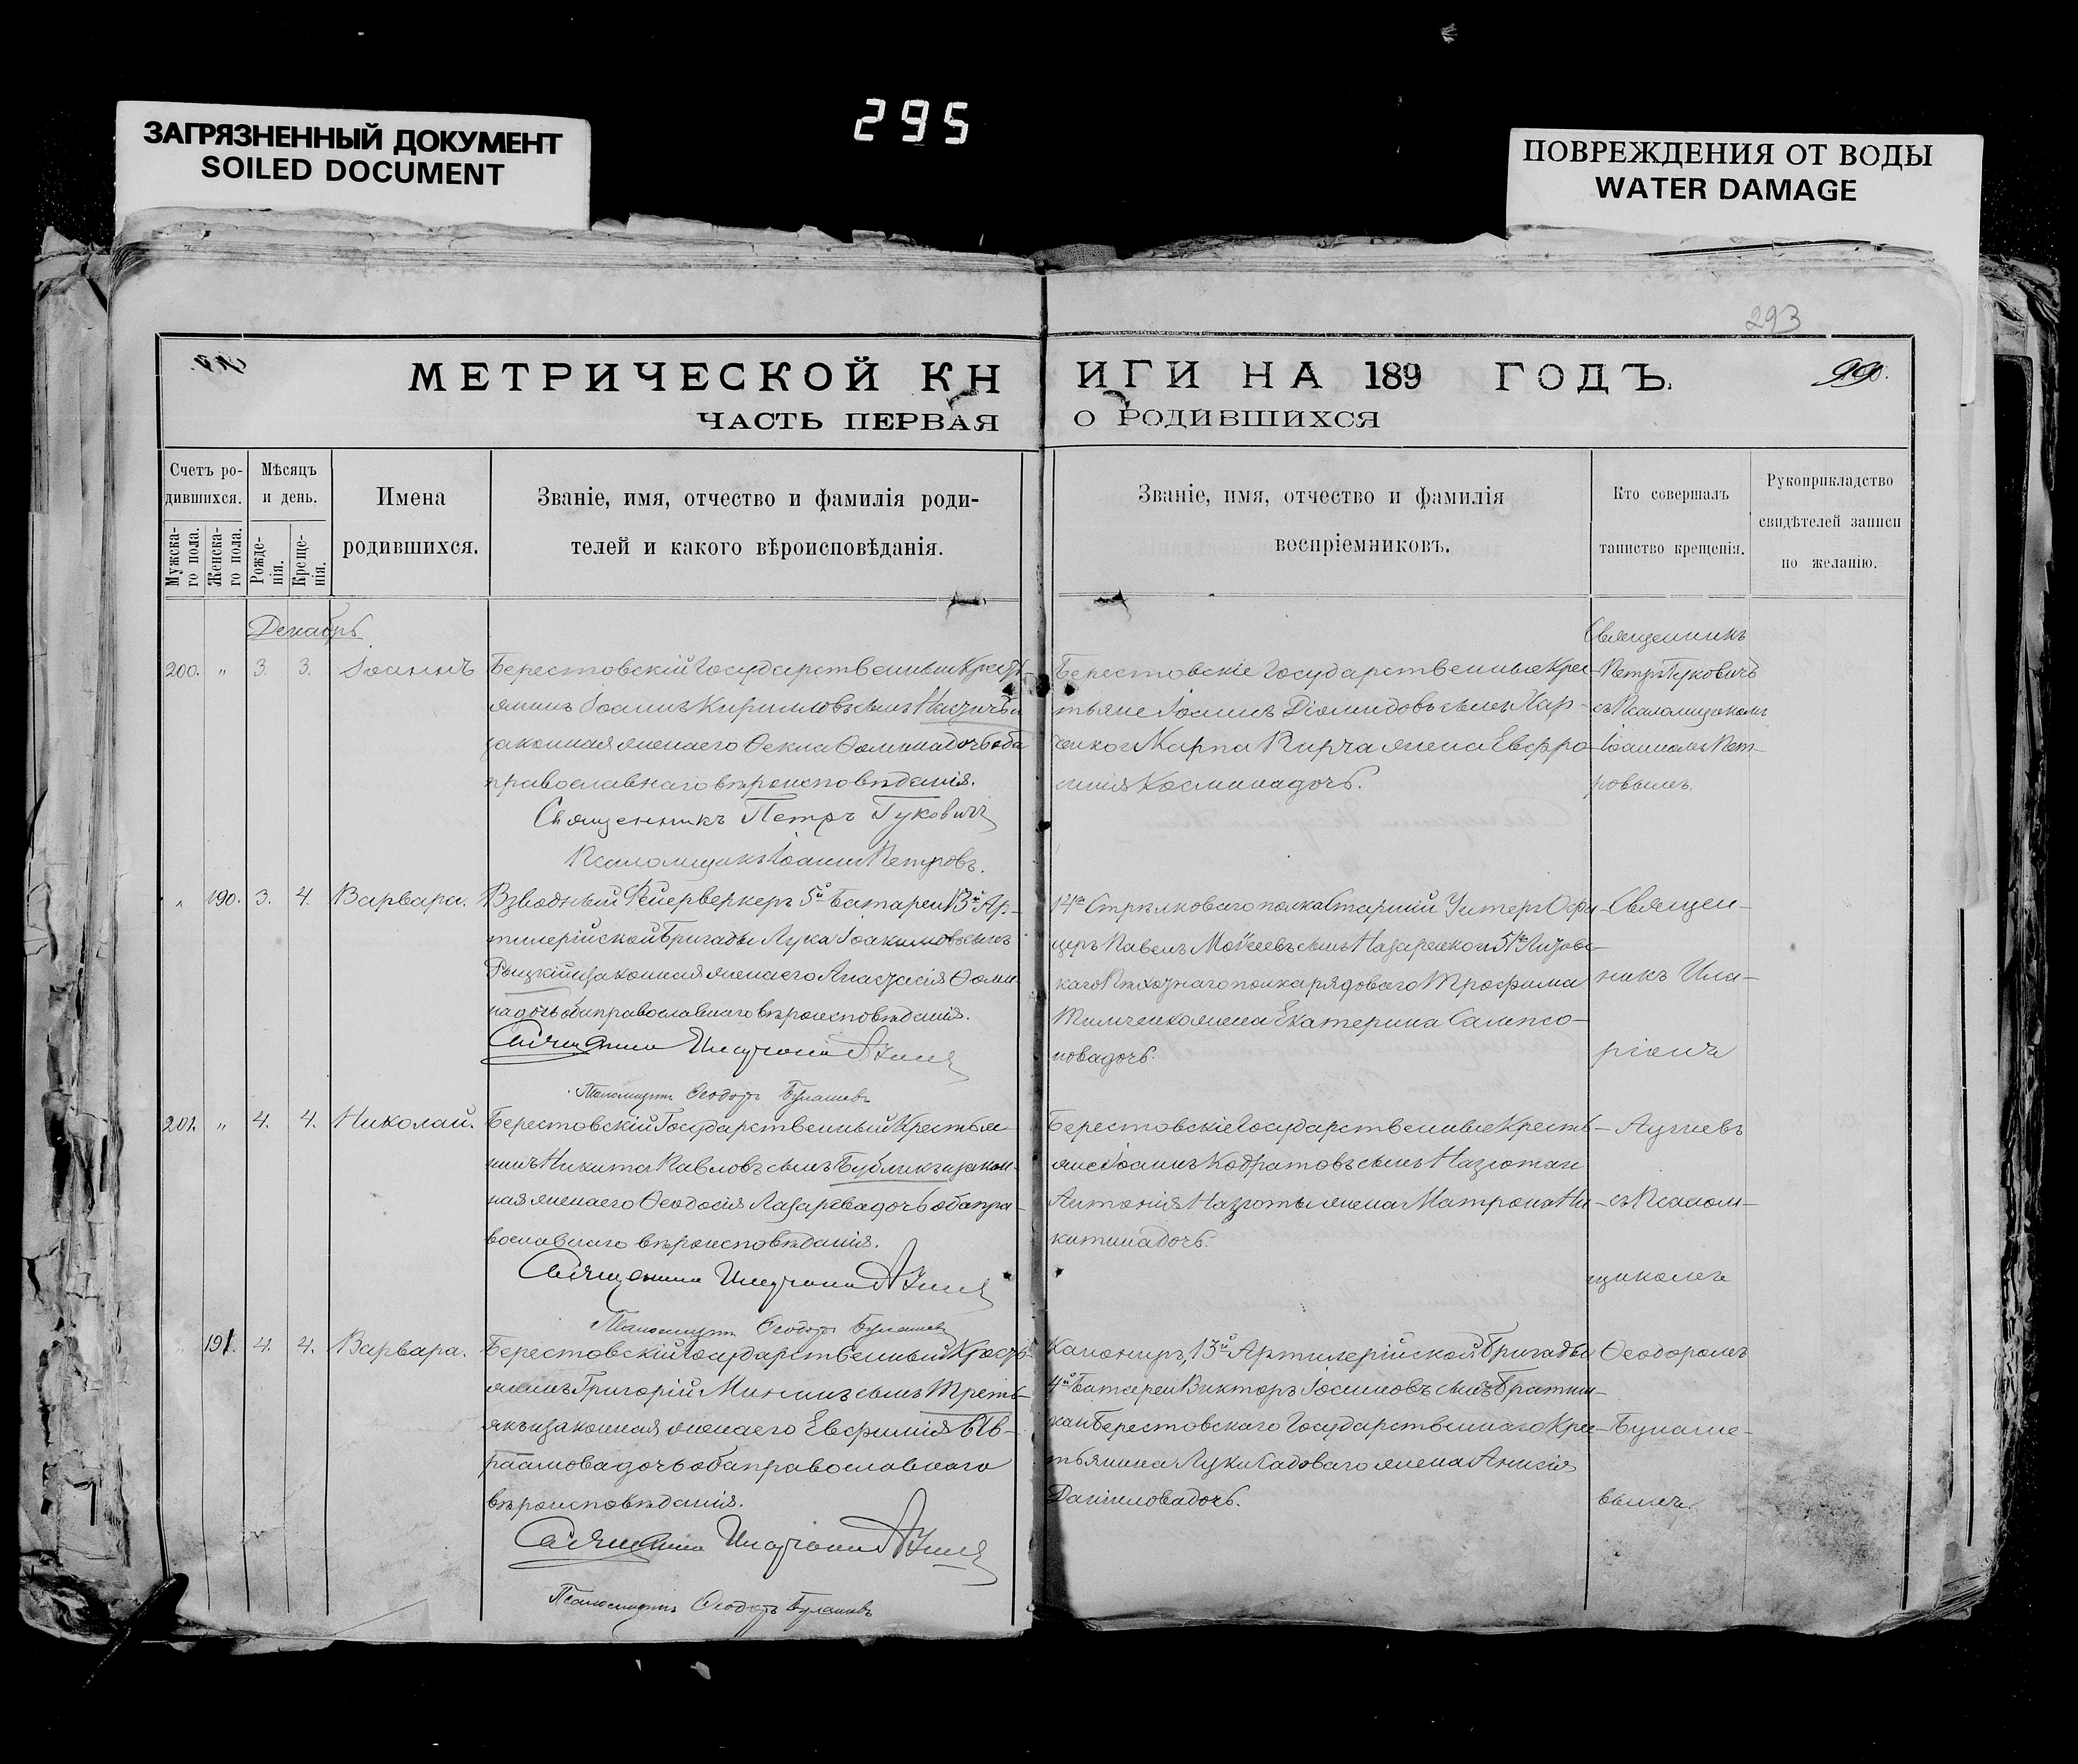 295
ЗАГРЯЗНЕННЫЙ ДОКУМЕНТ
SOILED DOCUMENT
ПОВРЕЖДЕНИЯ ОТ ВОДЫ
WATER DAMAGE
293
МЕТРИЧЕСКОЙ КН
ИГИ НА 189 ГОДЪ.
ЧАСТЬ ПЕРВАЯ
О РОДИВШИХСЯ
Счетъ ро-
дившихся.
Мужска-
го пола.
Женска-
го пола.
Мѣсяцъ
и день.
Рожде-
нія.
Креще-
нія.
Имена
родившихся.
Званіе, имя, отчество и фамилія роди-
телей и какого вѣроисповѣданія.
Званіе, имя, отчество и фамилія
воспріемниковъ.
Кто совершалъ
таинство крещенія.
Рукоприкладство
свидѣтелей записи
по желанію.
Декабрь
200. " 3. 3. Іоаннъ
Берестовскій Государственный Кресть-
янинъ Іоаннъ Кирилловъ сынъ
законная жена его Ѳекла Ѳомина дочь оба
православнаго вѣроисповѣданія.
Священникъ Петръ Гуковичъ
Псаломщикъ Іоаннъ Петровъ.
Берестовскіе Государственные Крес-
тьяне Іоаннъ Діомидовъ сынъ Хар-
ченко и Карпа Кирча жена Евфро-
синія Космина дочь.
Священникъ
Петръ Гуковичъ
съ Псаломщикомъ
Іоанномъ Пет-
ровымъ.
" 190. 3. 4. Варвара.
Взводный Фейерверкеръ 5й Батареи 13й Ар-
тилерійской Бригады Лука Іоакимовъ сынъ
и законная жена его Анастасія Ѳоми-
на дочь оба православнаго вѣроисповѣданія.
Священникъ Иларіонъ
Псаломщикъ Ѳеодоръ Булашевъ
14го Стрѣлковаго полка Старшій Унтеръ Офи-
церъ Павелъ Моѵсеевъ сынъ Назаренко и 51го Литовс-
каго Пѣхотнаго полка рядоваго Трофима
Тимченко жена Екатерина Сампсо-
нова дочь.
Священ-
никъ Ила-
ріонъ
201. " 4. 4. Николай.
Берестовскій Государственный Крестья-
нинъ Никита Павловъ сынъ Бубликъ и закон-
ная жена его Ѳеодосія Лазарева дочь оба пра-
вославнаго вѣроисповѣданія.
Священникъ Иларіонъ
Псаломщикъ Ѳеодоръ Булашевъ
Берестовскіе Государственные Кресть-
яне Іоаннъ Кодратовъ сынъ
Антонія жена Матрона Ни-
китина дочь.
съ Псалом-
щикомъ
" 191. 4. 4. Варвара.
Берестовскій Государственный Кресть-
янинъ Григорій Мининъ сынъ Треть-
якъ и законная жена его Евфимія Ав-
раамова дочь оба православнаго
вѣроисповѣданія.
Священникъ Иларіонъ
Псаломщикъ Ѳеодоръ Булашевъ
Канониръ, 13й Артилерійской Бригады
4й Батареи Викторъ Іосифовъ сынъ
и Берестовскаго Государственнаго Крес-
тьянина Луки Садоваго жена Анисія
Даніилова дочь.
Ѳеодоромъ
Булаше-
вымъ.